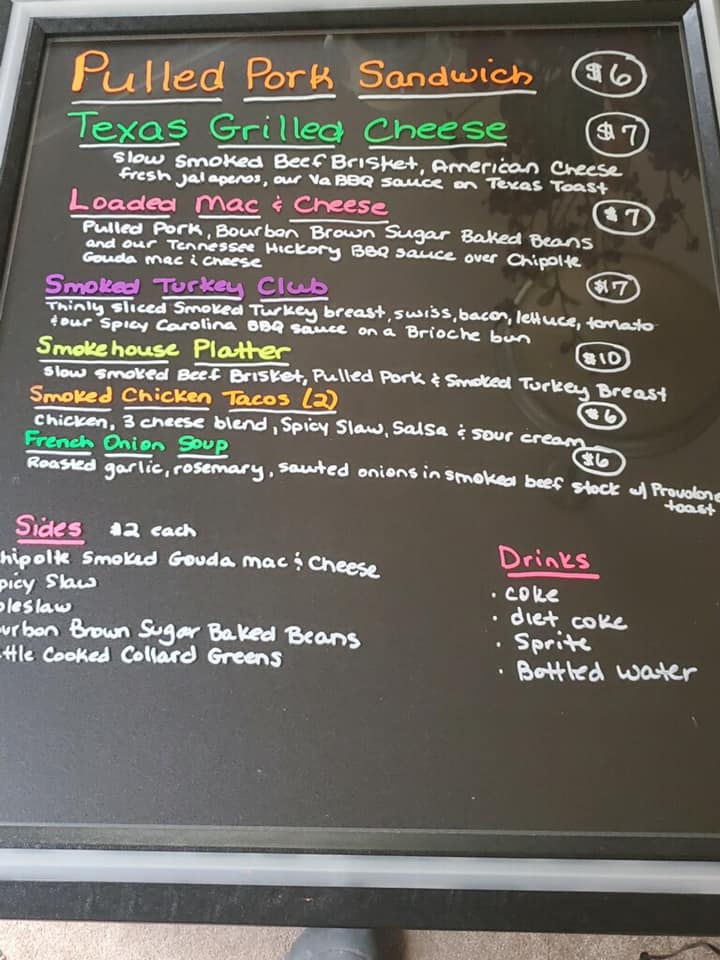 Pulled Pork Sandwich $6
Texas Grilled Cheese $7
Slow Smoked Beef Brisket, American Cheese
fresh jalapenos, our Va BBQ sauce on Texas Toast
Loaded Mac & Cheese $7
Pulled Pork, Bourbon Brown Sugar Baked Beans
and our Tennessee Hickory BBQ sauce over Chipolte
Gouda mac & cheese
Smoked Turkey Club $7
Thinly sliced Smoked Turkey breast, swiss, bacon, lettuce, tomato
& our Spicy Carolina BBQ sauce on a Brioche bun
Smokehouse Platter $10
Slow smoked Beef Brisket, Pulled Pork & Smoked Turkey Breast
Smoked Chicken Tacos (2) $6
Chicken, 3 cheese blend, Spicy Slaw, Salsa & sour cream
French Onion Soup $6
Roasted garlic, rosemary, sauted onions in smoked beef stock w/ Provolone
toast
Sides $2 each
hipolte Smoked Gouda mac & Cheese
picy Slaw
oleslaw
urbon Brown Sugar Baked Beans
ttle Cooked Collard Greens
Drinks
· coke
· diet coke
· Sprite
· Bottled water